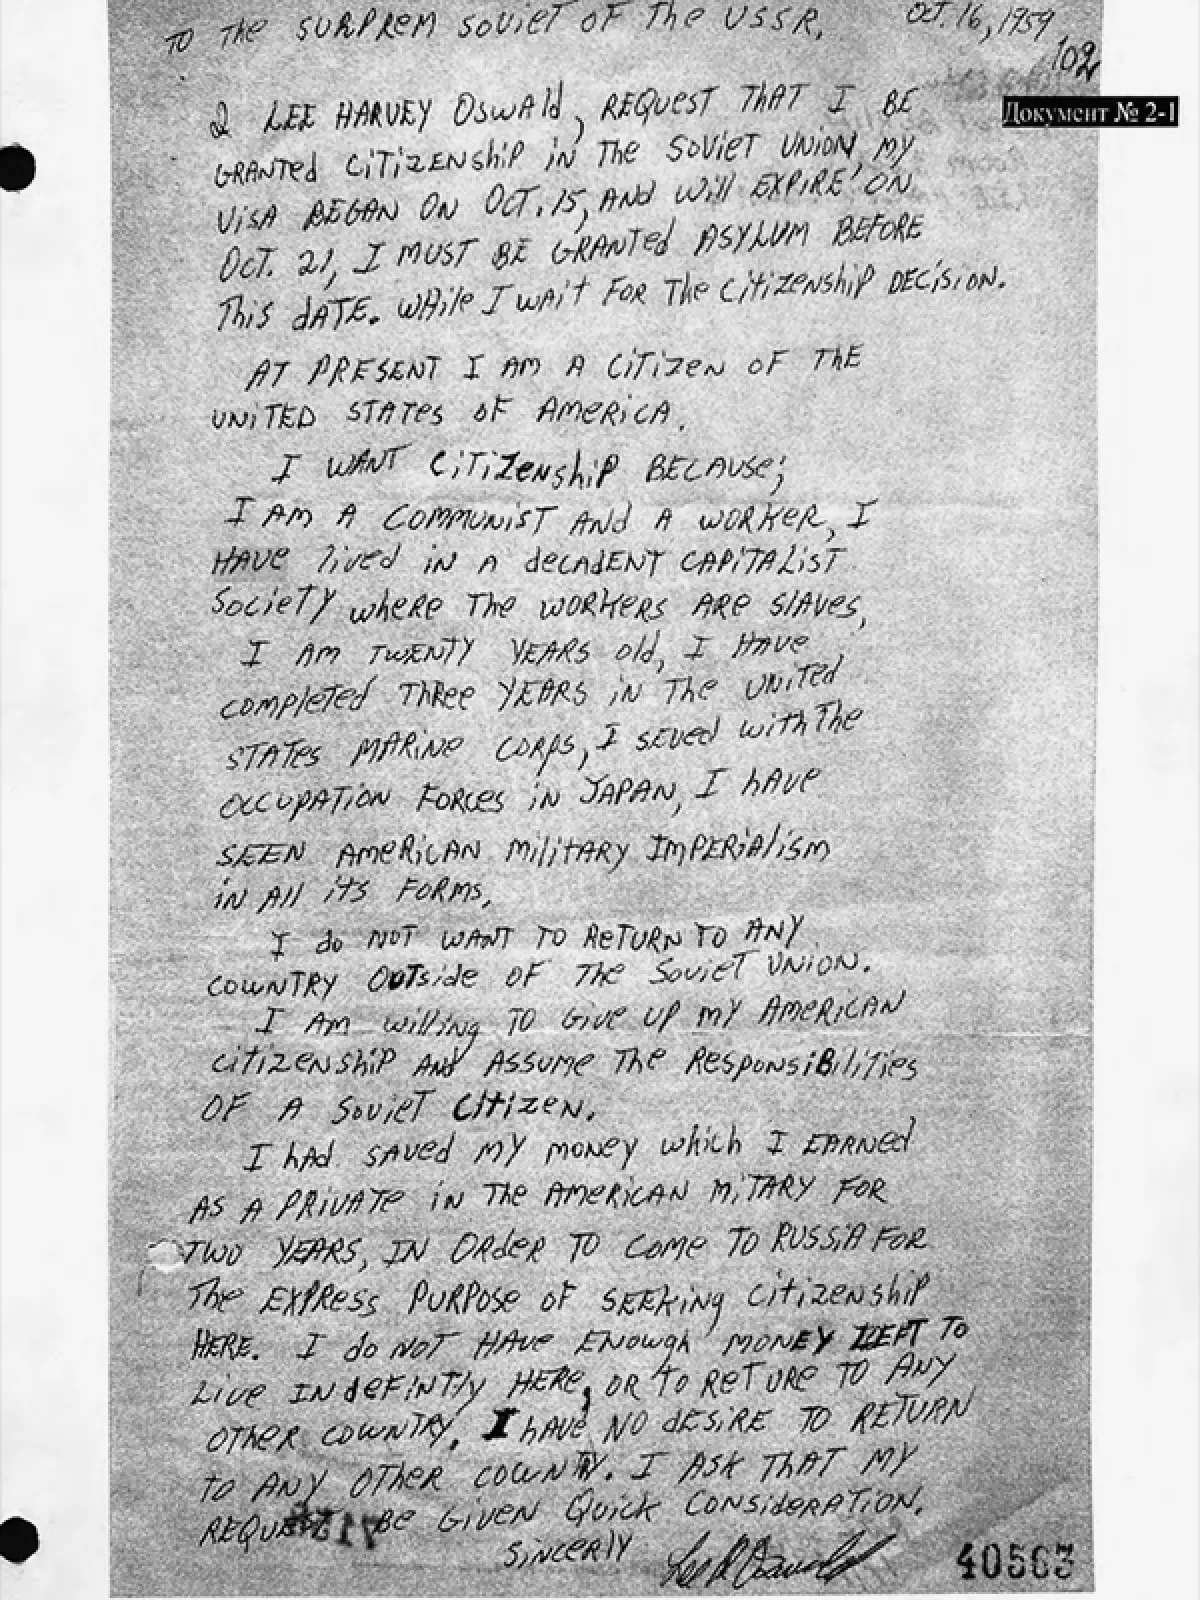 To The SURPREM SOVIET OF The USSR. Oct. 16, 1959
102
Документ № 2-1
I LEE HARVEY Oswald, REQUEST THAT I BE
GRANTEd CITIZENShip in The SOVIET UNION, MY
ViSA BEGAN ON OCT. 15, AND will EXPIRE ON
OCT. 21, I MUST BE GRANTEd ASYLUM BEFORE
This dATE. WHile I wait FOR The CitizENShiP DECiSiON.
AT PRESENT I AM A CiTiZen OF The
UNiTED STATes OF AMeRiCA.
I WANT CiTiZenshiP BECAUSe;
I AM A COMMUNiST ANd A WORKeR, I
HAVe lived iN A decAdENT CAPiTAList
SocieTY where The WORKERS ARe SlAVes,
I AM TWENTY YEARS old, I HAVe
COMPleTed ThRee YEARS iN The UNiTed
STATes MARiNe CORPS, I SEVed wiTh The
OCCUPATiON FORCes iN JAPAN, I hAVe
SEEN AMeRiCAN MiliTARY IMPERiAlism
iN All iTs FORMs,
I do NOT WANT TO ReTURN TO ANY
COUNTRY OUTside OF The SovieT UNiON.
I AM willing TO Give UP MY AMERiCAN
CiTiZENshiP ANd ASSUMe The ResPONSiBiliTies
OF A SovieT CiTiZeN.
I hAd SAVed MY MONey which I EARNed
AS A PRiVATe iN The AMeRiCAN MiTARY FOR
TWO YEARS, IN ORdeR TO COMe TO RUSSiA FOR
The EXPRess PURPOSe OF SEEKiNg CiTiZeNshiP
HERE. I do NOT HAVe ENOUgh MONEY LEFT TO
Live INdeFiNTly HERE, OR TO ReTURE TO ANY
OTHeR COUNTRY. I hAVe NO deSiRE TO RETURN
TO ANY OTHeR COUNTRY. I ASK ThAT MY
REQUEST BE GiVEN QuicK CONSideRATiON.
SiNCERlY Lee H Oswald
40563